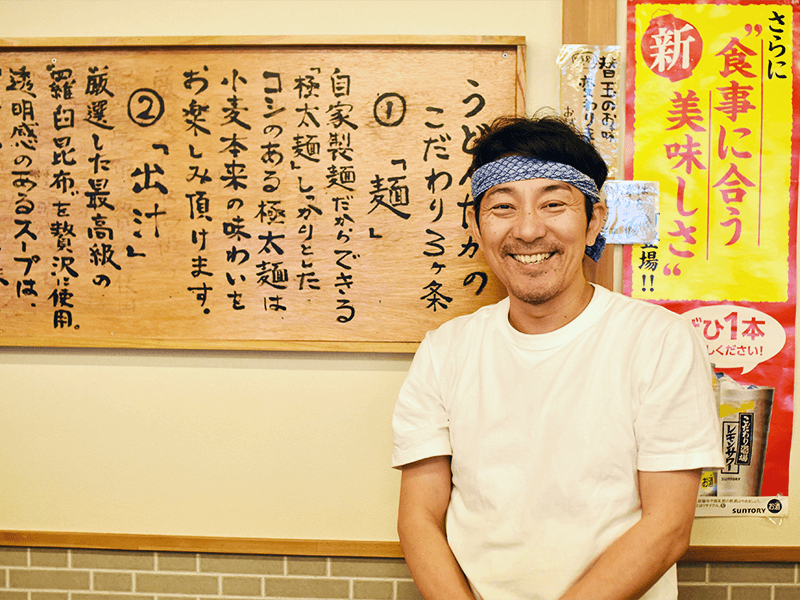 うどん
こだわり3ヶ条
①「麺」
自家製麺だからできる
「極太麺」しっかりとした
コシのある極太麺は
小麦本来の味わいを
お楽しみ頂けます。
②「出汁」
厳選した最高級の
羅臼昆布を贅沢に使用。
透明感のあるスープは、
替玉のお味
さらに
新
"食事に合う
美味しさ"
登場!!
ひ1本
しください!
こだわり酒場
レモンサワー
お酒
SUNTORY
お酒